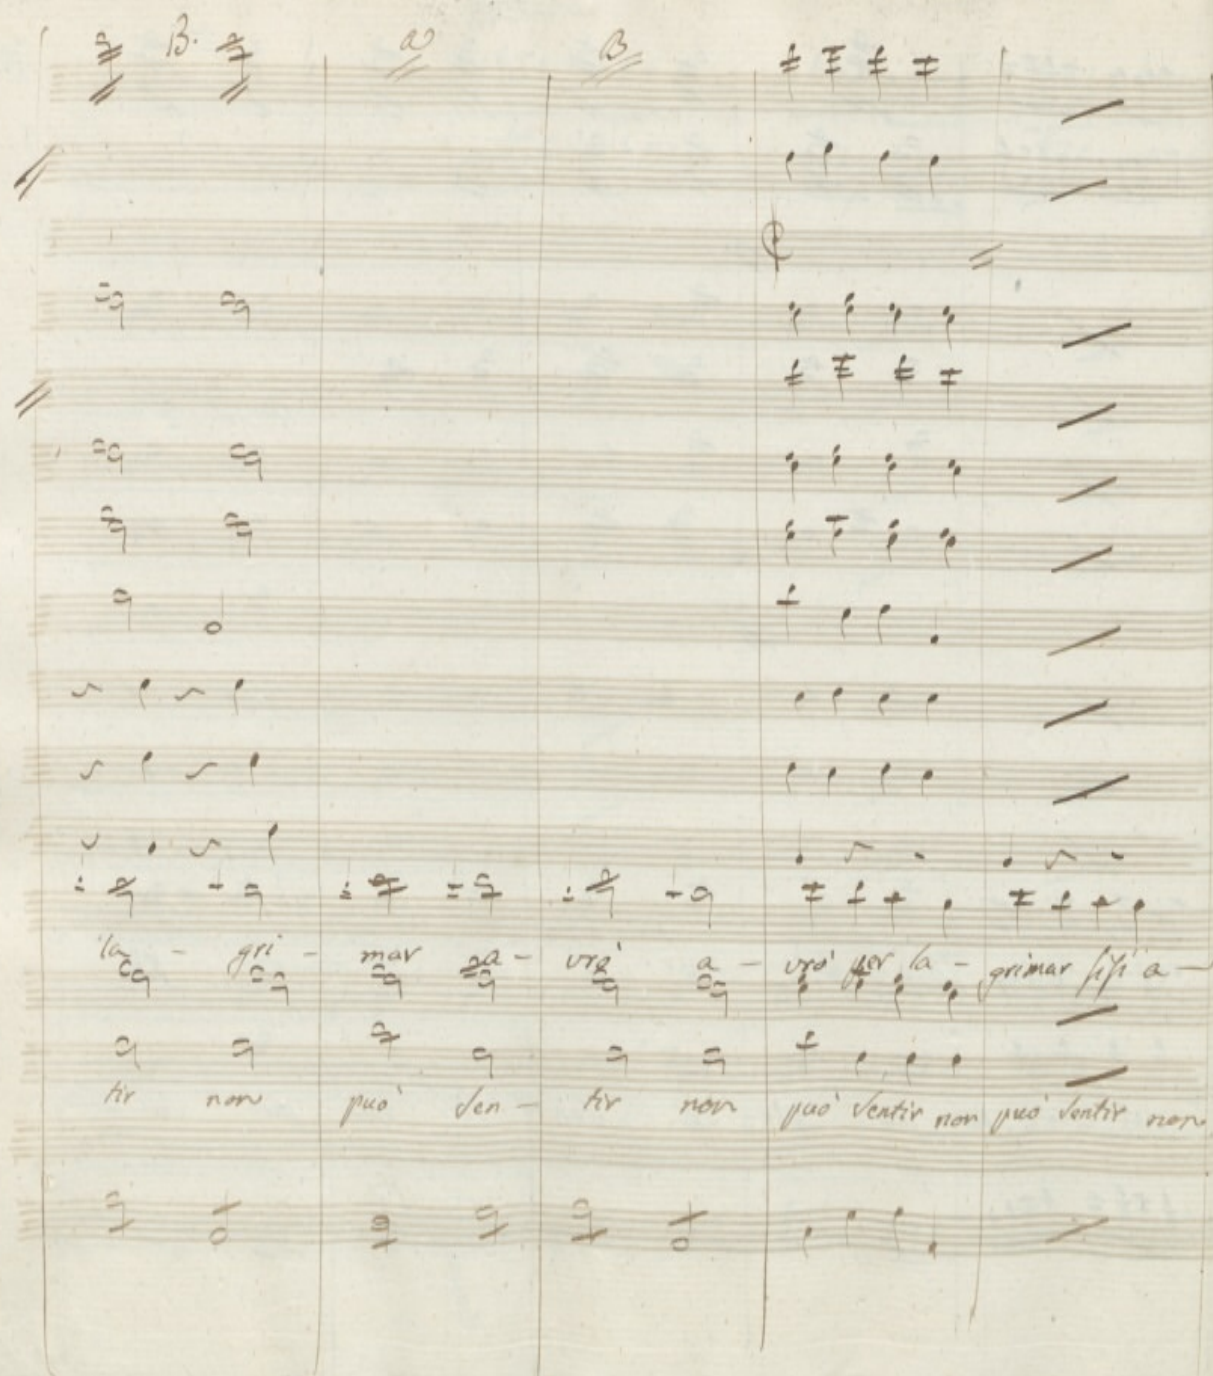 B. a B
la - gri - mar sa - vrò a - vrò per la - grimar sisi a -
tir non può sen - tir non può sentir non può sentir non